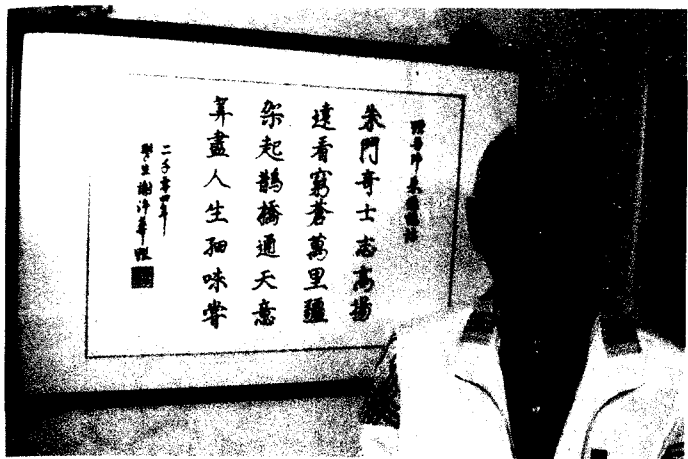 朱門奇士志高揚
遠看窮蒼萬里疆
架起鵲橋通天意
算盡人生細味嘗
二千零四年
學生謝沛華